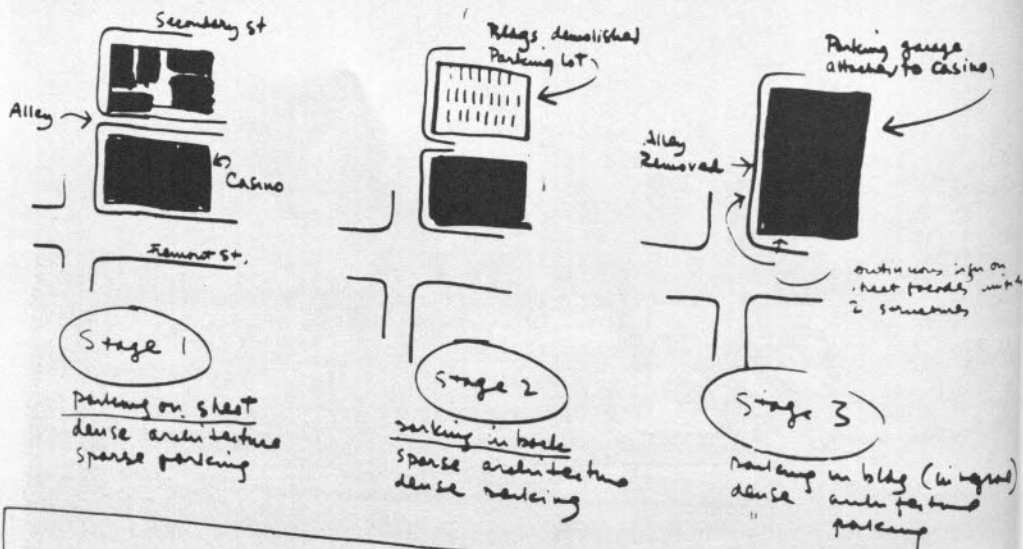 Secondary St
Alley
Casino
Fremont St.
Stage 1
parking on street
dense architecture
sparse parking
Bldgs demolished
Parking Lot
Stage 2
parking in back
sparse architecture
dense parking
Parking garage
attached to Casino
Alley
Removed
continuous sign on
street facades
2 structures
Stage 3
parking in bldg (integral)
dense architecture
" parking